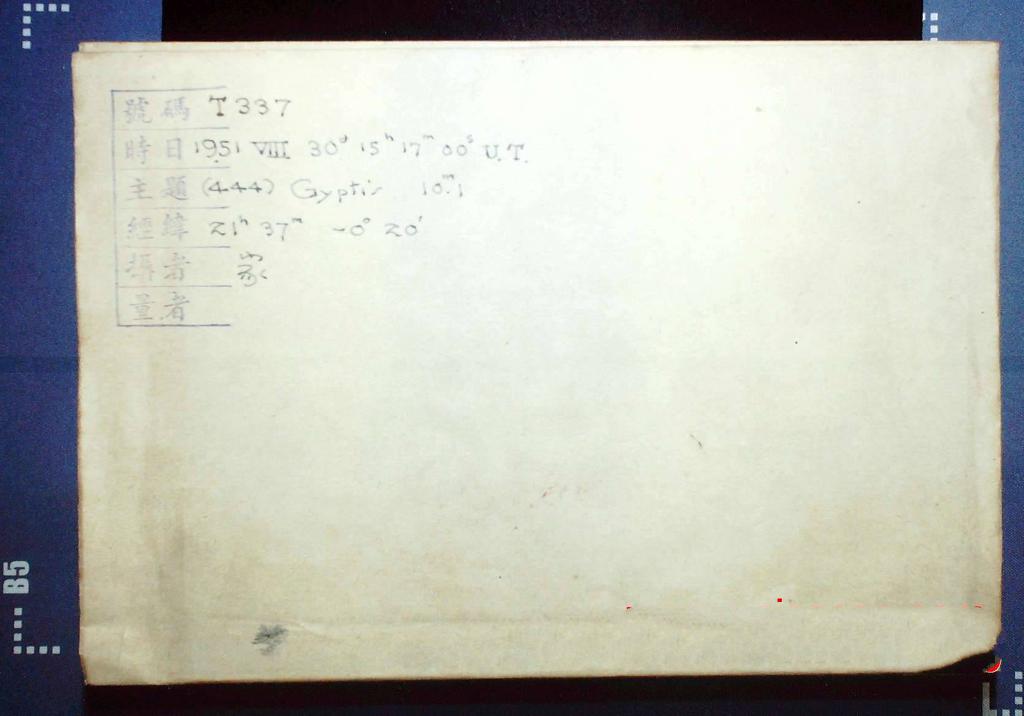 號碼 T 337
時日 1951 VIII 30ᵈ 15ʰ 17ᵐ 00ˢ U.T.
主題 (444) Gyptis 10ᵐ.1
經緯 21ʰ 37ᵐ -0° 20'
攝者
量者
B5